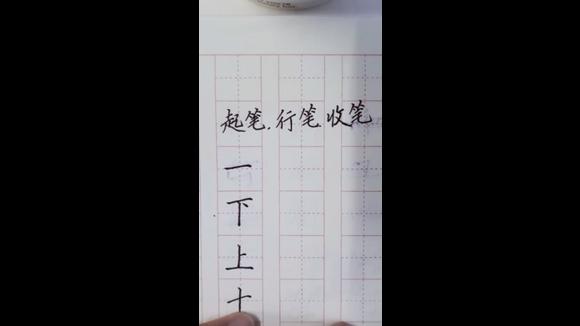 起笔.行笔收笔
一
下
上
十